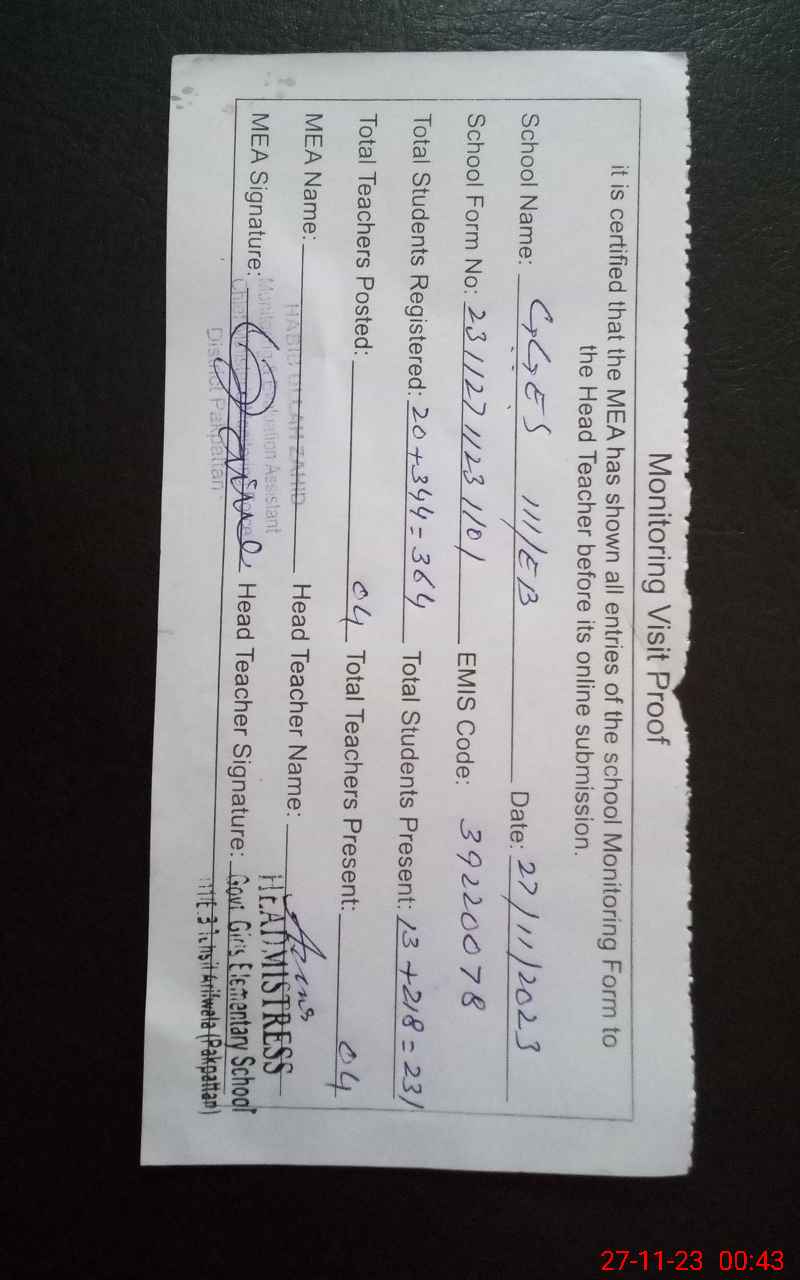 Monitoring Visit Proof
it is certified that the MEA has shown all entries of the school Monitoring Form to
the Head Teacher before its online submission.
School Name: GGES 111/EB Date: 27/11/2023
School Form No: 23112711231101 EMIS Code: 39220078
Total Students Registered: 20+344=364 Total Students Present: 13+218=231
Total Teachers Posted: 04 Total Teachers Present: 04
MEA Name: HABIB ULLAH ZAHID Head Teacher Name:
Monitoring & Evaluation Assistant
HEADMISTRESS
MEA Signature: Head Teacher Signature: Govt. Girls Elementary School
District Pakpattan
111/E.B Tehsil Arifwala (Pakpattan)
27-11-23 00:43